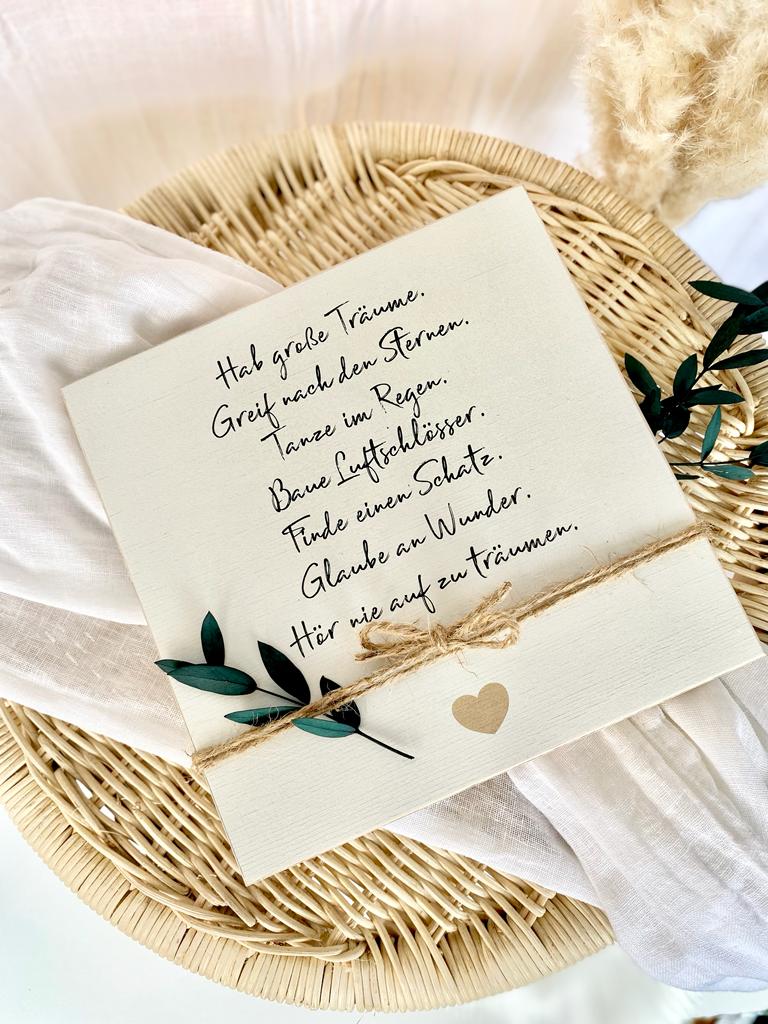 Hab große Träume.
Greif nach den Sternen.
Tanze im Regen.
Baue Luftschlösser.
Finde einen Schatz.
Glaube an Wunder.
Hör nie auf zu träumen.